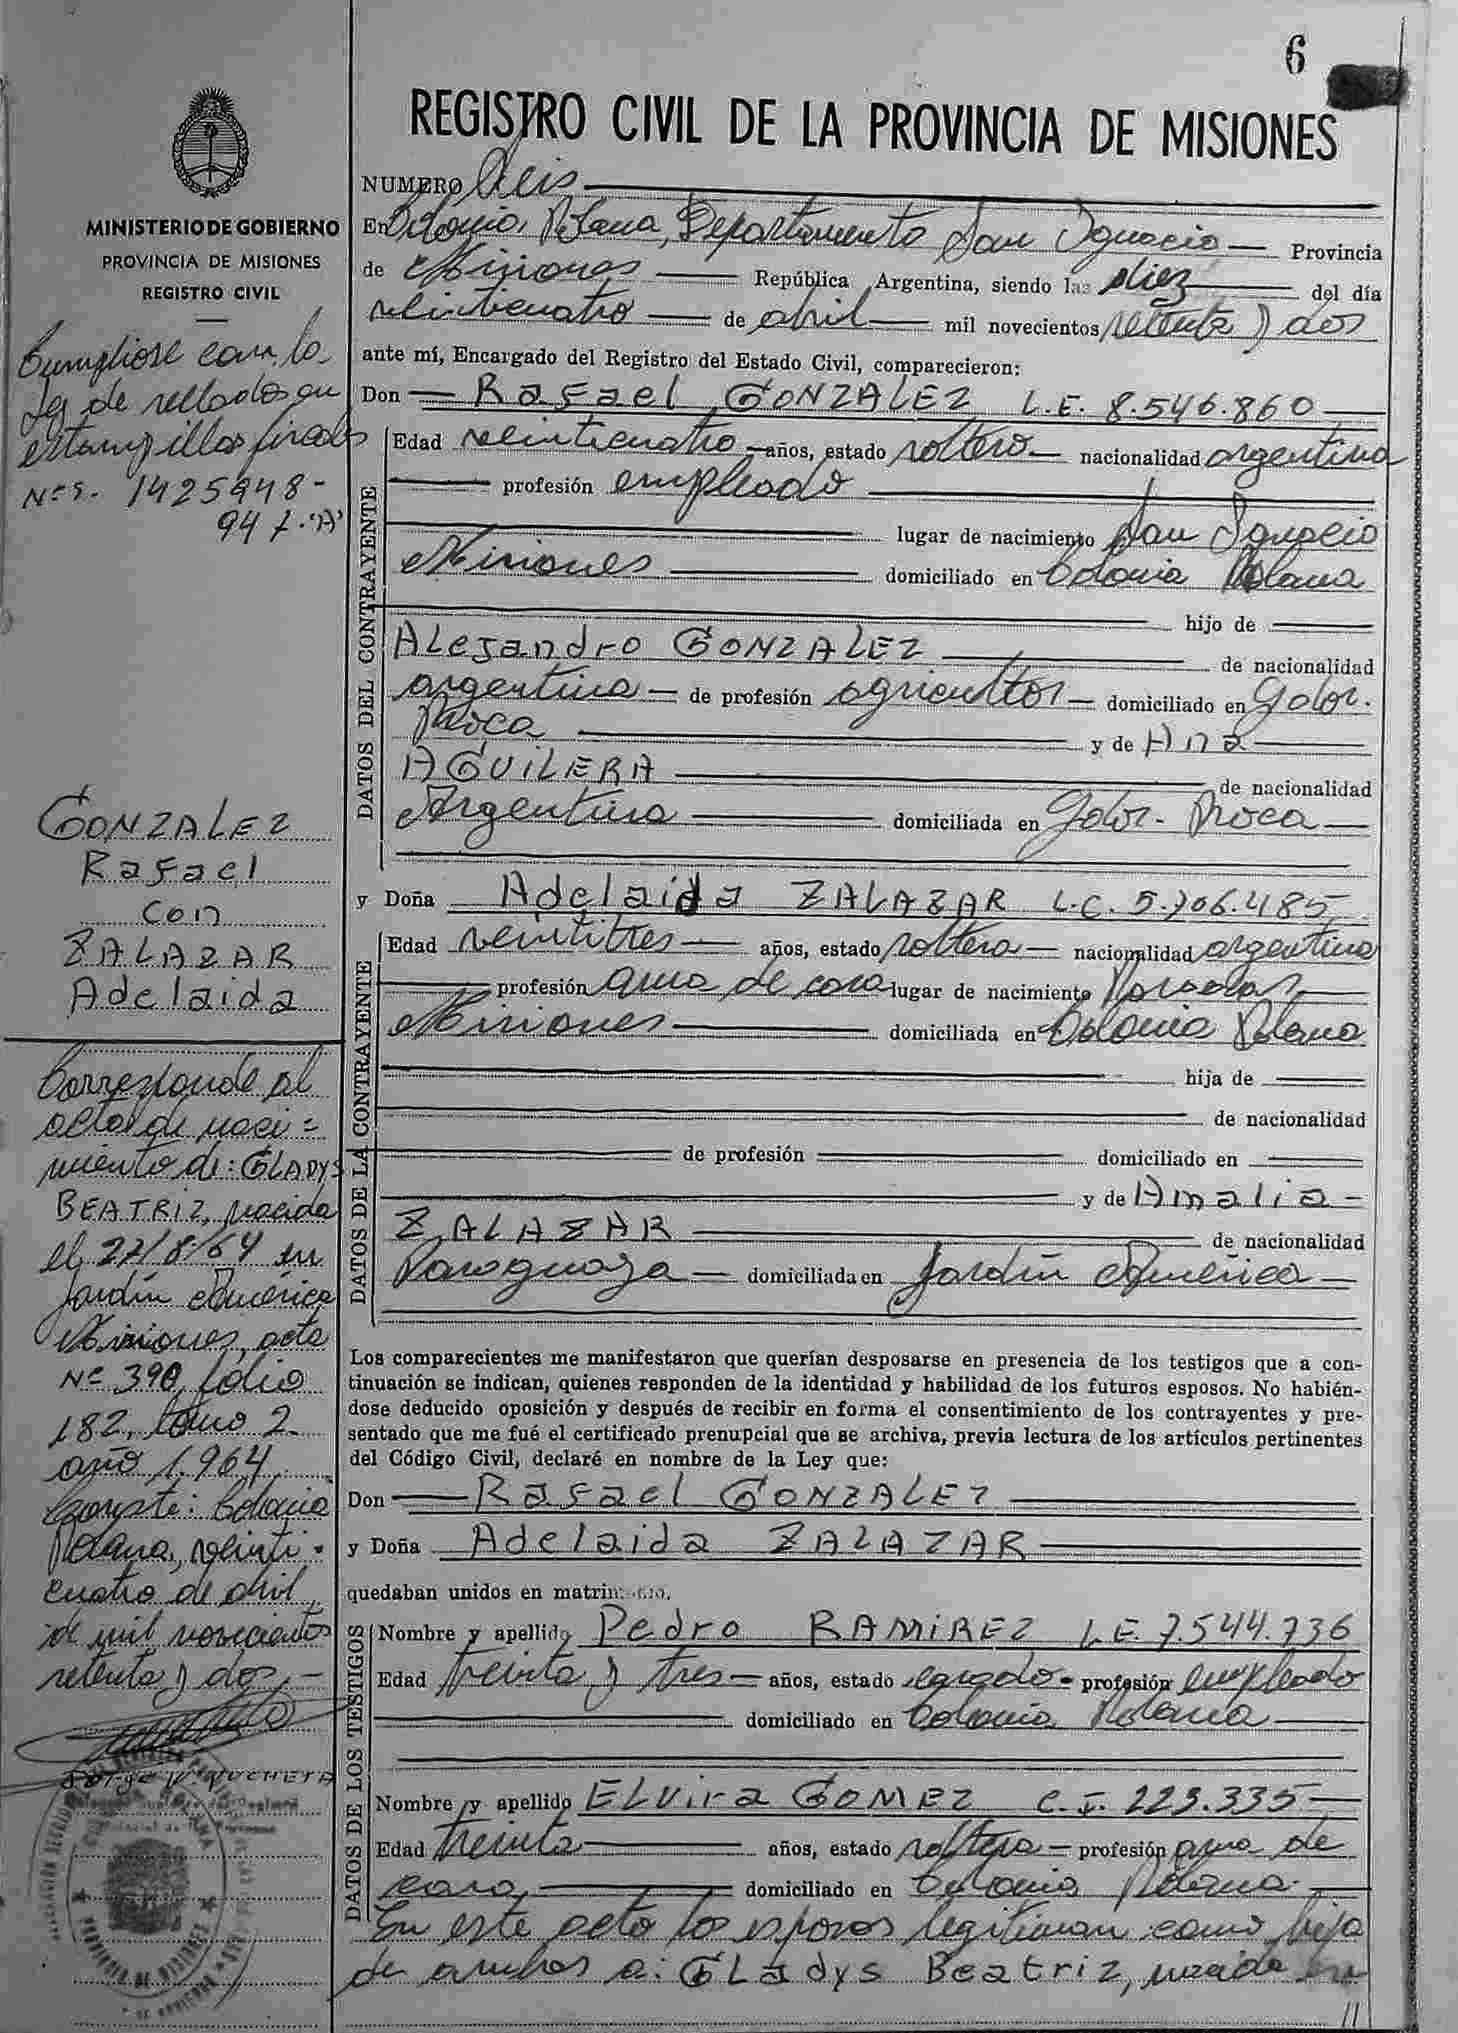 6
REGISTRO CIVIL DE LA PROVINCIA DE MISIONES
MINISTERIO DE GOBIERNO
PROVINCIA DE MISIONES
REGISTRO CIVIL
Cumpliose con la
Ley de sellados en
estampillas fiscales
Nos. 1425948-
947."A"
GONZALEZ
Rafael
con
ZALAZAR
Adelaida
Corresponde al
acta de naci=
miento de: GLADYS
BEATRIZ, nacida
el 27/8/64 en
Jardín América
Misiones, acta
Nº 390, folio
182, tomo 2
año 1.964
Conste: Colonia
Polana, veinti-
cuatro de abril
de mil novecientos
setenta y dos.-
NUMERO Seis
En Colonia Polana, Departamento San Ignacio — Provincia
de Misiones — República Argentina, siendo las diez — del día
veinticuatro — de abril — mil novecientos setenta y dos
ante mí, Encargado del Registro del Estado Civil, comparecieron:
Don — Rafael GONZALEZ L.E. 8.546.860 —
DATOS DEL CONTRAYENTE
Edad veinticuatro — años, estado soltero — nacionalidad argentina
— profesión empleado —
— lugar de nacimiento San Ignacio
Misiones — domiciliado en Colonia Polana
— hijo de —
Alejandro GONZALEZ — de nacionalidad
argentina — de profesión agricultor — domiciliado en Gobor.
Roca — y de Ana —
AGUILERA — de nacionalidad
Argentina — domiciliada en Gobor. Roca —
y Doña Adelaida ZALAZAR L.C. 5.706.485
DATOS DE LA CONTRAYENTE
Edad veintitres — años, estado soltera — nacionalidad argentina
— profesión ama de casa lugar de nacimiento Posadas —
Misiones — domiciliada en Colonia Polana
— hija de —
— de nacionalidad
— de profesión — domiciliado en —
— y de Amalia —
ZALAZAR — de nacionalidad
Paraguaya — domiciliada en Jardín América —
Los comparecientes me manifestaron que querían desposarse en presencia de los testigos que a con-
tinuación se indican, quienes responden de la identidad y habilidad de los futuros esposos. No habién-
dose deducido oposición y después de recibir en forma el consentimiento de los contrayentes y pre-
sentado que me fué el certificado prenupcial que se archiva, previa lectura de los artículos pertinentes
del Código Civil, declaré en nombre de la Ley que:
Don — Rafael GONZALEZ —
y Doña Adelaida ZALAZAR —
quedaban unidos en matrimonio.
DATOS DE LOS TESTIGOS
Nombre y apellido Pedro RAMIREZ L.E. 7.544.736
Edad treinta y tres — años, estado casado - profesión empleado
— domiciliado en Colonia Polana —
Nombre y apellido ELvira GOMEZ C.I. 223.335 —
Edad treinta — años, estado soltera — profesión ama de
casa — domiciliado en Colonia Polana. —
En este acto los esposos legitiman como hija
de ambos a: GLadys Beatriz, nacida en
//